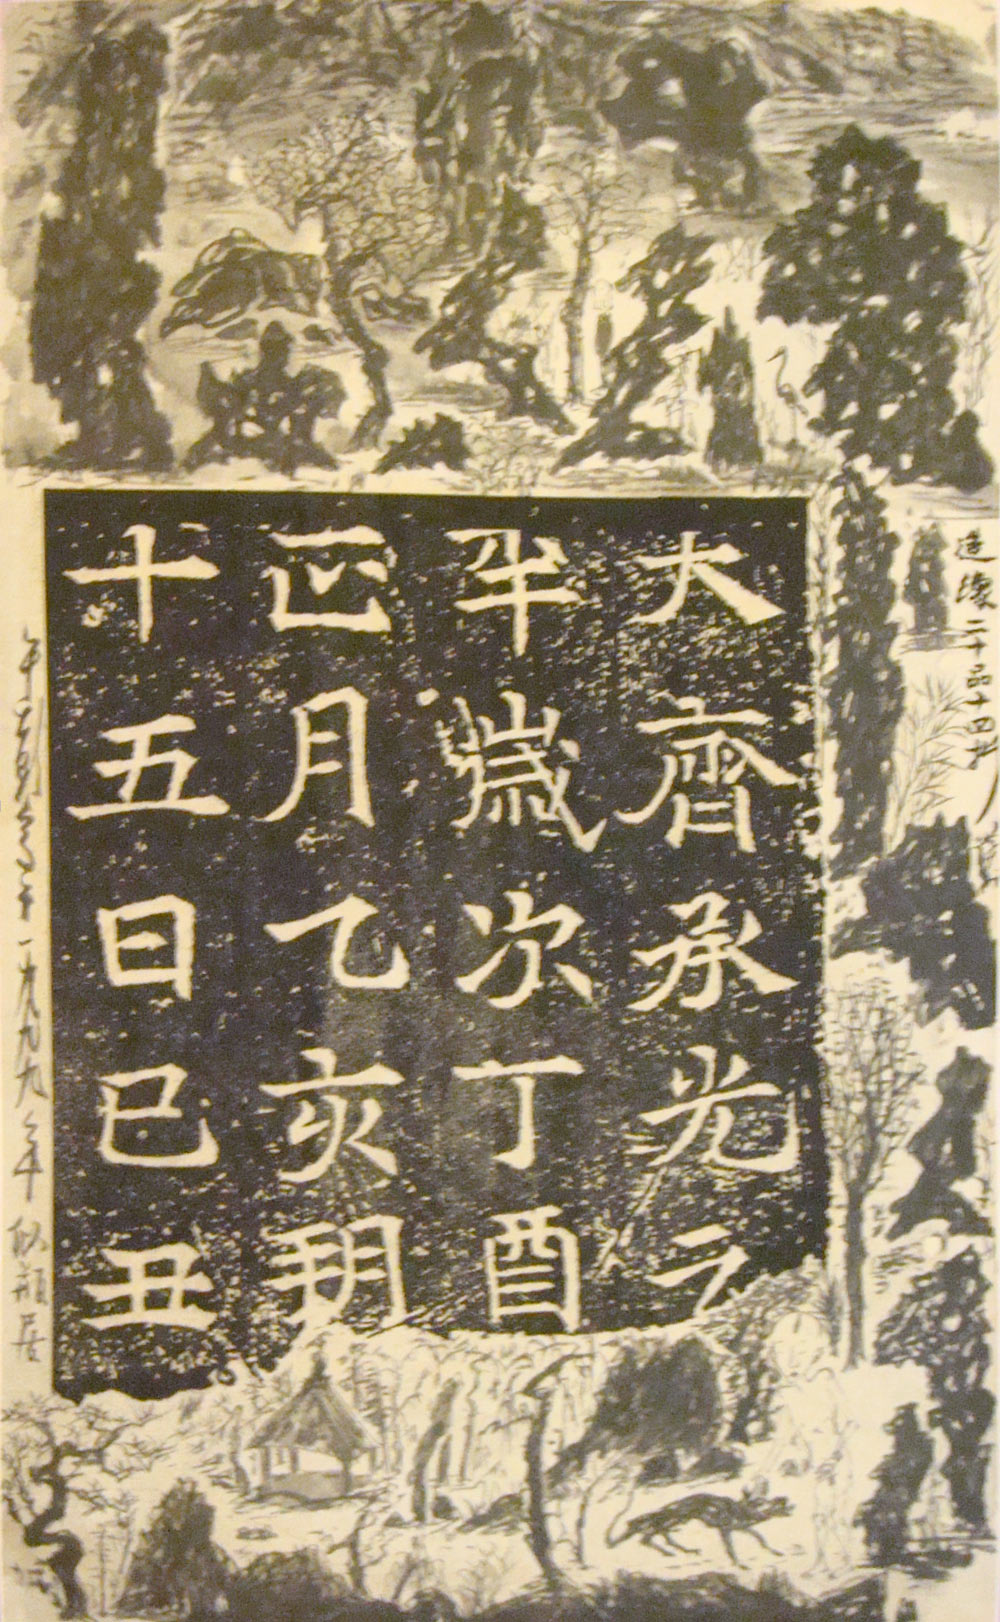 大齊承光元
年歲次丁酉
正月乙亥朔
十五日巳丑
造像二十品十四
一九九九年